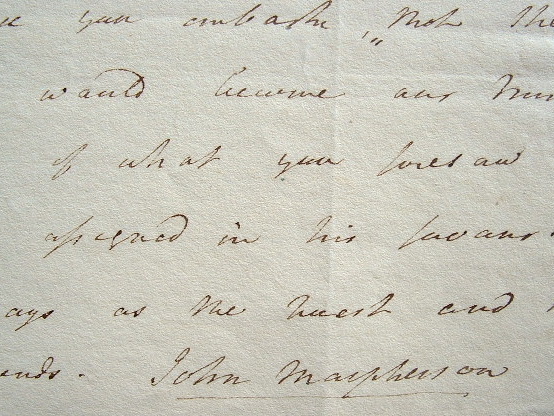 you embark, "that the
would become our
of what you foresaw
assigned in his favour
as the truest and
John Macpherson